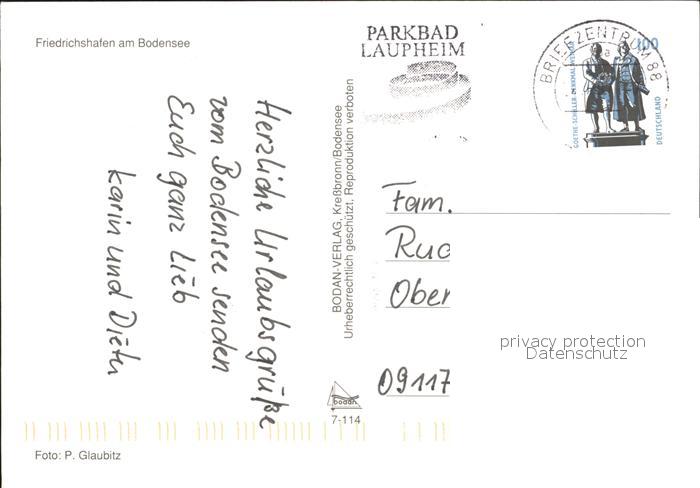 Friedrichshafen am Bodensee
Herzliche Urlaubsgrüße
vom Bodensee senden
Euch ganz lieb
Karin und Dieter
Foto: P. Glaubitz
BODAN-VERLAG, Kreßbronn/Bodensee
Urheberrechtlich geschützt. Reproduktion verboten
bodan
7-114
PARKBAD
LAUPHEIM
BRIEFZENTRUM 88
a
100
GOETHE-SCHILLER-DENKMAL WEIMAR
DEUTSCHLAND
Fam.
Rud
Ober
09117
privacy protection
Datenschutz